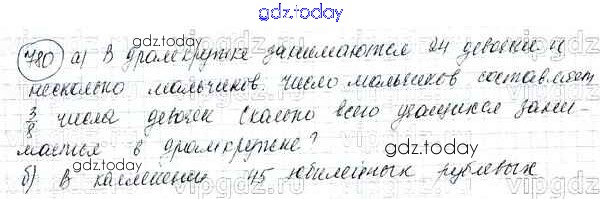 gdz.today
780 а) В драмкружке занимаются 24 девочки и
gdz.today
несколько мальчиков. Число мальчиков составляет
3/8 числа девочек Сколько всего учащихся зани-
gdz.today
мается в драмкружке?
gdz.today
б) В коллекции 45 юбилейных рублевых
vipgdz.ru